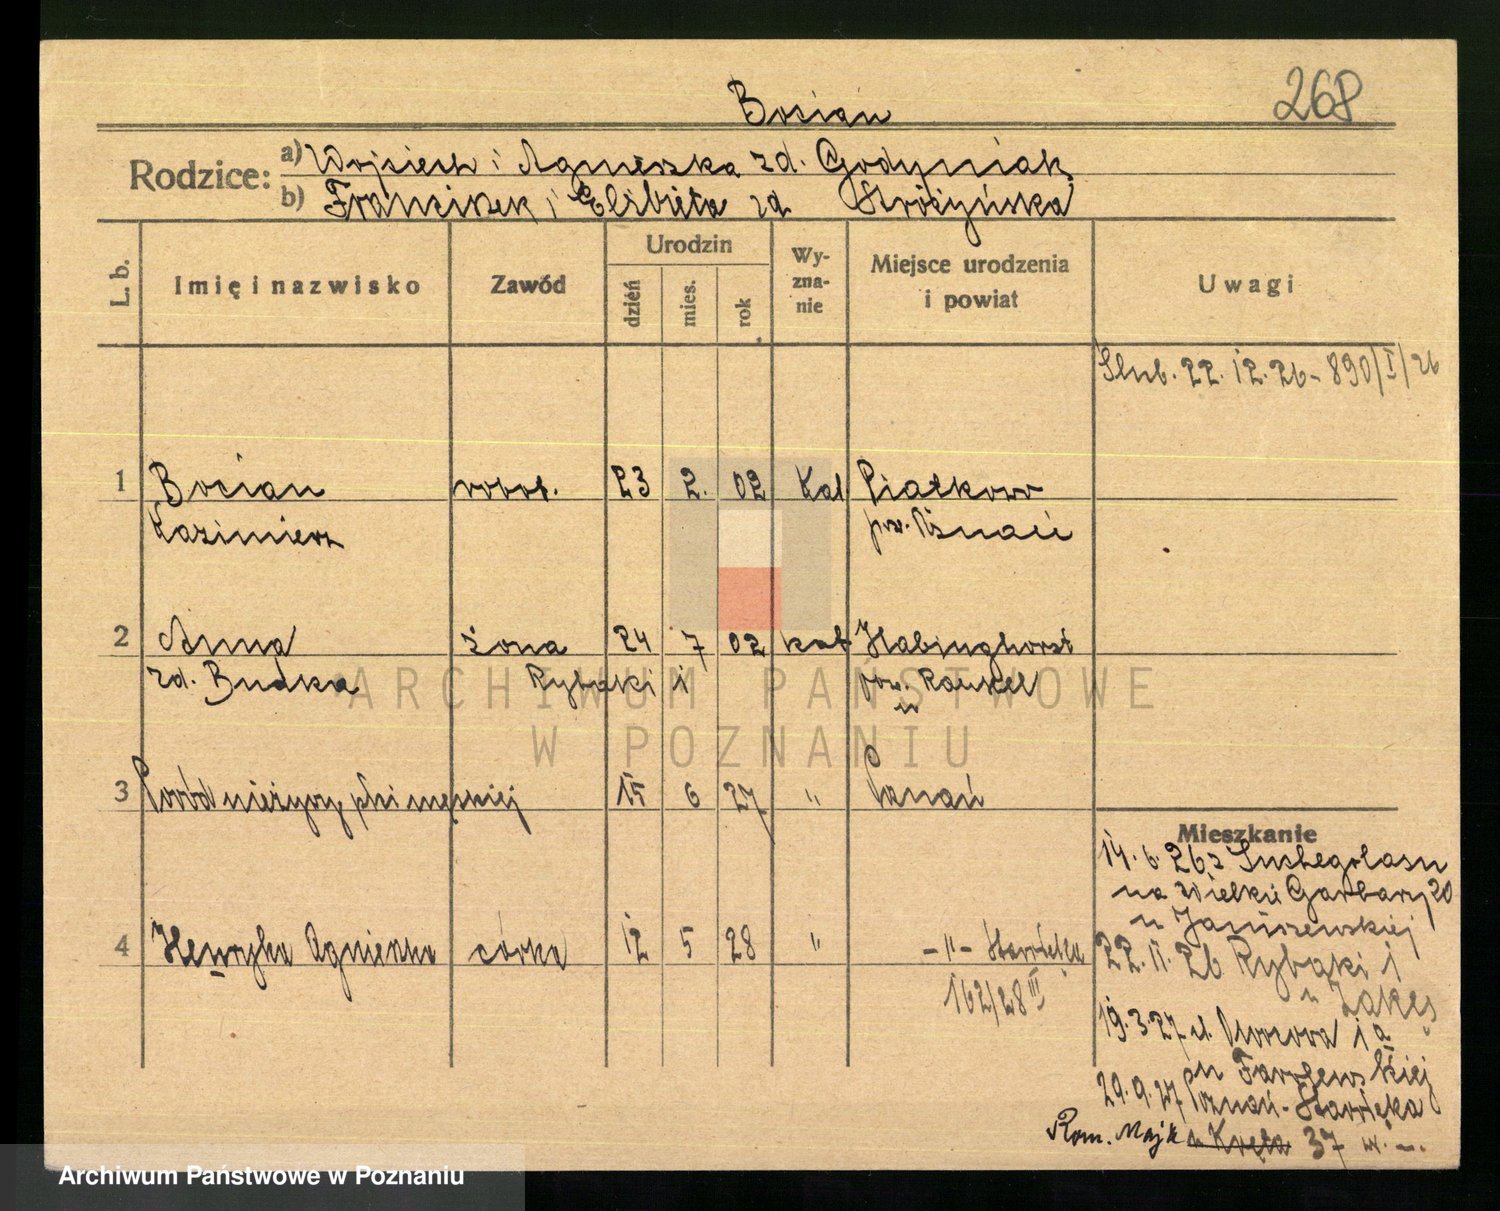 268
Bocian
Rodzice: a) Wojciech i Agnieszka zd. Godyniak
b) Franciszek i Elżbieta zd Stróżyńska
L. b. Imię i nazwisko Zawód Urodzin dzień mies. rok Wy-zna-nie Miejsce urodzenia i powiat Uwagi
Ślub. 22. 12. 26 - 890/I/26
1 Bocian robot. 23 2. 02 Kat Piątkowo
Kazimierz pow. Poznań
2 Anna żona 24 7 02 kat Habinghorst
zd. Budka Rybaki 1 pow. Rauxel
3 Poród nieżywy płci męskiej 15 6 27 " Poznań
Mieszkanie
14. 6. 26 z Suchegolasu
na Wielkie Garbary 20
u Januszewskiej
4 Henryka Agnieszka córka 12 5 28 " -"- Starołęka
162/28 III
22. 11. 26 Rybaki 1
u Żakes
19. 3. 27 ul. 1 a
29. 9. 27 Poznań - Starołęka
Rom. Majk u Kręta 37 w. -.
ARCHIWUM PAŃSTWOWE
W POZNANIU
Archiwum Państwowe w Poznaniu